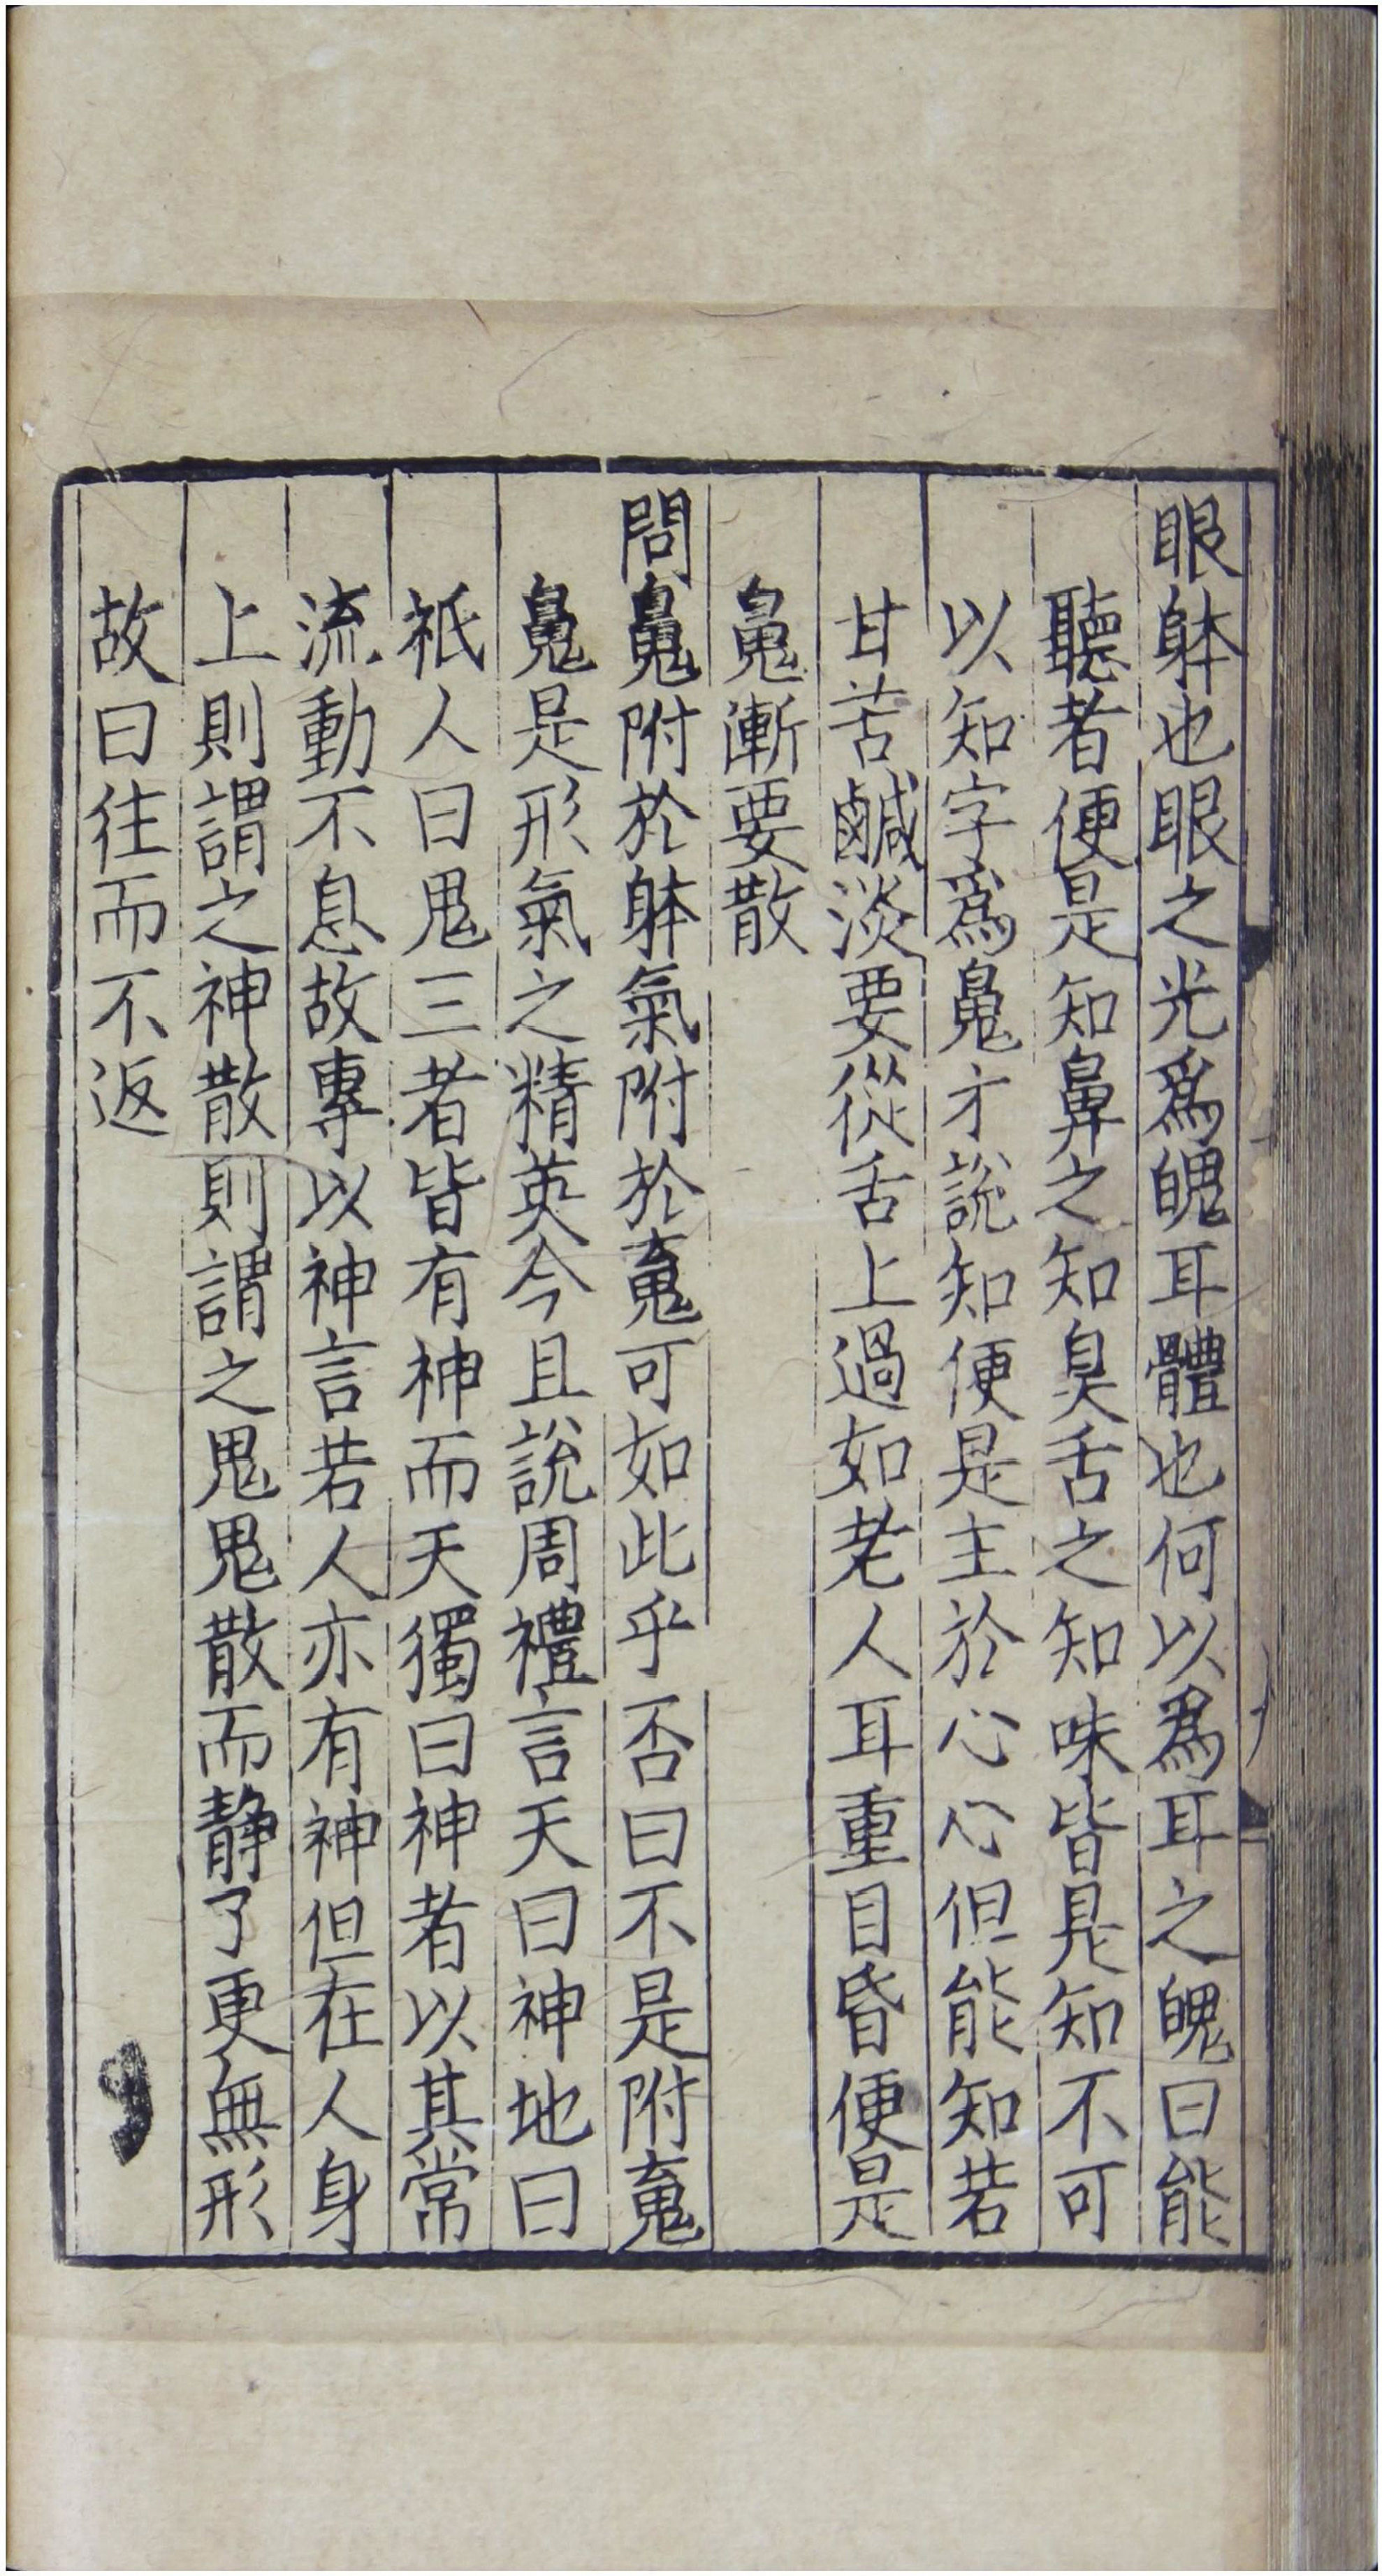 眼躰也眼之光爲魄耳體也何以爲耳之魄曰能
聽者便是知鼻之知臭舌之知味皆是知不可
以知字爲魄才說知便是主於心心但能知若
甘苦鹹淡要從舌上過如老人耳重目昏便是
魄漸要散
問魄附於躰氣附於䰟可如此乎否曰不是附䰟
魄是形氣之精英今且說周禮言天曰神地曰
祇人曰鬼三者皆有神而天獨曰神者以其常
流動不息故專以神言若人亦有神但在人身
上則謂之神散則謂之鬼鬼散而靜了更無形
故曰往而不返